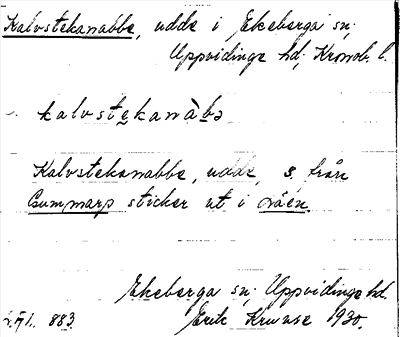 Kalvstekanabbe, udde i Ekeberga sn;
Uppvidinge hd; Kronob. l.
kalvstekanàbə
Kalvstekanabbe, udde, s. från
Gummarp sticker ut i åen.
Ekeberga sn; Uppvidinge hd.
883. Erik Kruuse 1930.